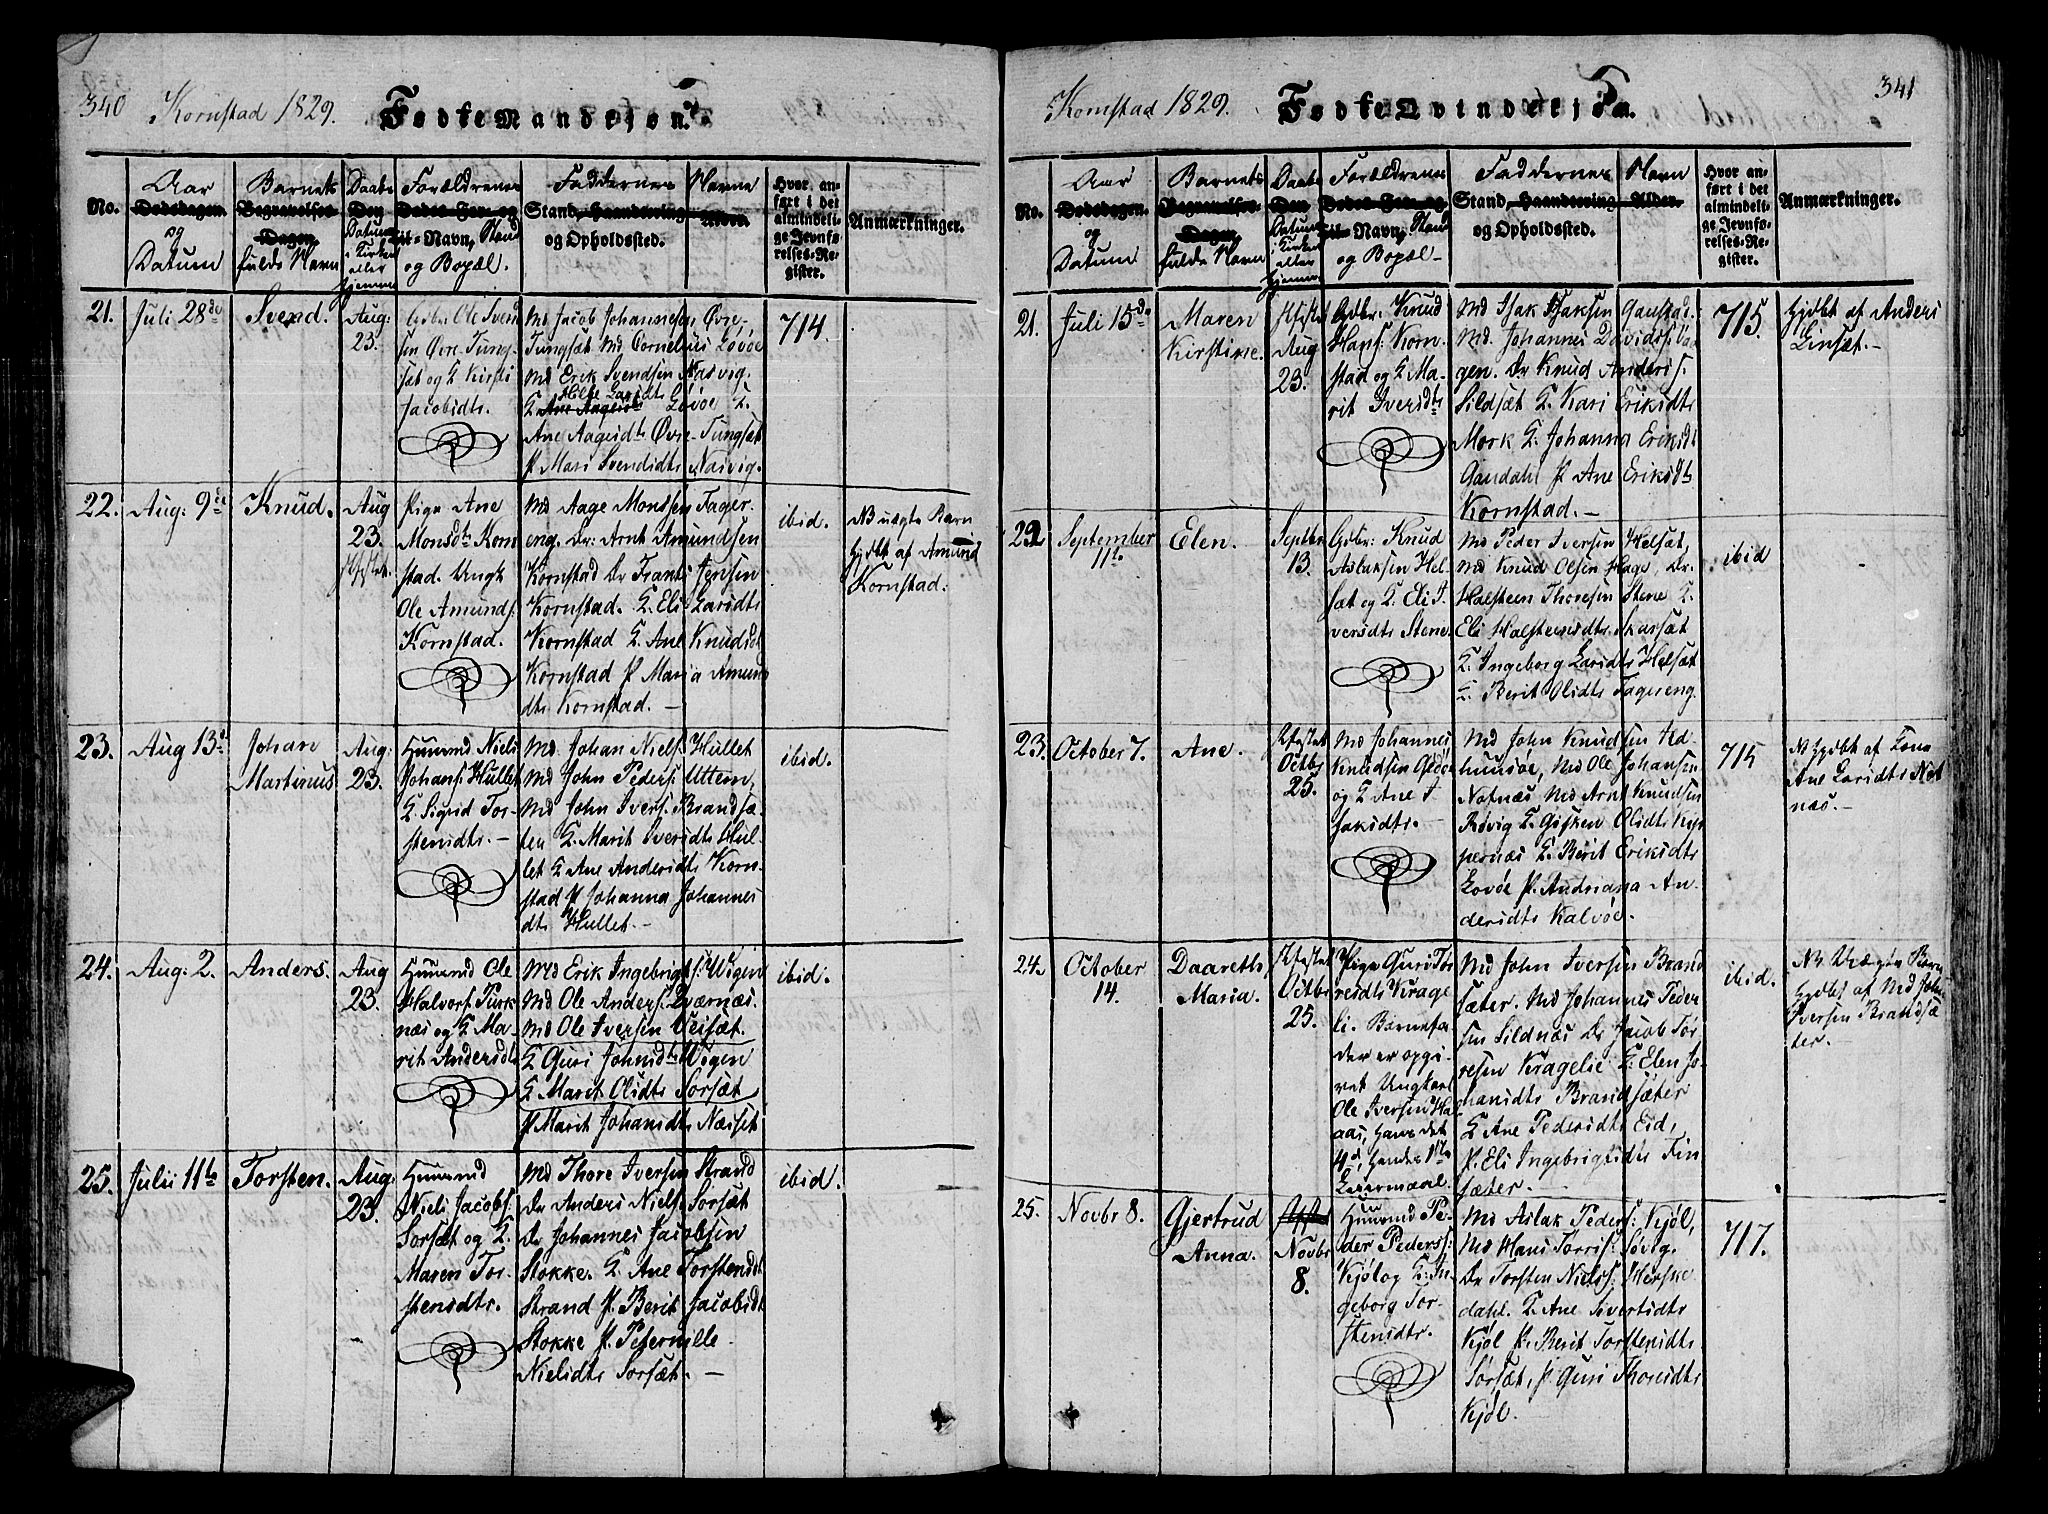 340 Kornstad 1829. Fødte Mandkjøn.
No.
Aar
Dødsdagen.
og
Datum
Barnets
Begravelses
Dagen
fulde Navn
Daabs
Dag
Datum
i Kirken
eller
hjemme
Forældrenes
Navn, Stand
og Bopæl.
Faddernes Navne
Stand, Haandtering Alder.
og Opholdssted.
Hvor an-
ført i det
almindeli-
ge Jevnfø-
relses-Re-
gister.
Anmærkninger.
21. Juli 28de
Svend.
Aug:
23.
Gdbr. Ole Svend
sen Øvre Tung-
sæt og K Kirsti
Jacobsdtr.
Md Jacob Johannesen Øvre-
Tungsæt Md Cornelius Lovøe
Md Erik Svendsen Nasvig.
K Ane Aagesdtr Lovøe K.
Ane Aagesdtr Øvre-Tungsæt
P Mari Svendsdtr Nasvig.
714
22. Aug: 9de
Knud.
Aug
23.
Pige Ane
Monsdtr Korn
stad. Ungk
Ole Amunds.
Kornstad.
Md Aage Monssen Fager-
eng. Dr: Arnt Amundsen
Kornstad Dr Frants Jensen
Kornstad. K. Eli Larsdtr
Kornstad K Ane Knudsdtr
Kornstad P Maria Amunds
dtr Kornstad. —
ibid.
NB uægte Barn
hjdbt af Amund
Kornstad.
23. Aug 13de
Johan
Martinus
Aug:
23.
Huusmd Niels
Johans: Hullet
K Sigrid Tor-
stensdtr. —
Md Johan Niels: Hullet
Md John Peders: Uttem,
Md John Ivers: Brandsæ-
ten K. Marit Iversdtr Hul-
let K Ane Andersdtr Korn-
stad P Johanna Johannes
dtr Hullet. —
ibid.
24. Aug: 2.
Anders.
Aug
23.
Huusmd Ole
Halvors: Turk-
næs og K Ma-
rit Andersdtr
Md Erik Ingebrigts: Wigen
Md Ole Anders: Qværnæs.
Md Ole Iversen Veisæt.
K Guri Johnsdtr Wigen
K Marit Olsdtr Sorsæt
P Marit Johansdtr Næsset
ibid.
25. Julii 11te
Torsten.
Aug.
23.
Huusmd
Niels Jacobs:
Sorsæt og K.
Maren Tor-
stensdtr.
Md Thore Iversen Strand
Dr Anders Niels: Sorsæt
Dr Johannes Jacobsen
Stokke. K. Ane Torstensdtr
Strand P. Berit Jacobsdtr
Stokke P. Peternille
Nielsdtr Sorsæt. —
ibid.
Kornstad 1829. Fødte Qvindekjøn. 341
No.
Aar
Dødsdagen.
og
Datum
Barnets
Begravelses
Dagen
fulde Navn
Daabs
Datum
i Kirken
eller
hjemme
Forældrenes
Navn, Stand
og Bopæl —
Faddernes Navn
Stand, Haandtering Alder
og Opholdssted.
Hvor an-
ført i det
almindeli-
ge Jevnfø-
relses-Re-
gister.
Anmærkninger.
21. Juli 15de
Maren
Kirstine.
Aug
23.
Gdbr. Knud
Hans: Korn-
stad og K Ma-
rit Iversdtr
Md Isak Isaksen Gaustad.
Md Johannes Davids: Va-
gen. Dr Knud Anders:
Sildsæt K. Kari Eriksdtr
Mork K. Johanna Eriksdtr
Gaudahl P Ane Eriksdtr
Kornstad. —
715.
hjdbt af Anders
Linsæt. —
22 September
11te
Elen.
Septbr
13.
Gdbr: Knud
Aslaksen Hel-
sæt og K. Eli I-
versdtr Stene.
Md Peder Iversen Helsæt,
Md Knud Olsen Hage, Dr.
Halsteen Thoresen Stene K.
Eli Halstensdtr. Skarsæt
K. Ingeborg Larsdtr Helsæt
K. Berit Olsdtr Fagereng.
ibid
23. October 7.
Ane.
Octbr
25.
Md Johannes
Knudsen
og K Ane I-
saksdtr. —
Md John Knudsen Ad-
huusøe, Md Ole Johansen
Notnæs Md Arnt Knudsen
Røvig K. Gisken Olsdtr
pernæs K. Berit Eriksdtr
Lovøe P. Andriana An-
dersdtr Kalvøe.
715
NB hjdbt af Kone
Ane Larsdtr Not
næs. —
24. October
14.
Daareth
Maria.
Octbr
25.
Pige Guri Tor
resdtr Krage-
li. Barnefa-
der er opgi-
vet Ungkarl
Ole Iversen
hans det
4d, hendes 1ste
Leiermaal.
Md John Iversen Brand
sæter. Md Johannes Peder
sen Sildnæs Dr Jacob Tor-
resen Kragelie K: Elen Jo-
hansdtr Brandsæter
K Ane Pedersdtr Eid,
P. Eli Ingebrigtsdtr Fin
sæter. —
ibid.
NB Uægte Barn
hjdbt af Md John
Iversen Brandsæ
ter. —
25. Novbr 8.
Gjertrud
Anna.
Novbr
8.
Huusmd Pe-
der Peders:
Kjøl og K: In-
geborg Tor-
stensdtr.
Md Aslak Peders: Kjøl,
Md Hans Torris: Søvig.
Dr Torsten Niels: Herske-
dahl. K. Ane Sivertsdtr
Kjøl P. Berit Torstensdtr
Sørsæt, P Guri Thoresdtr
Kjøl. —
717.